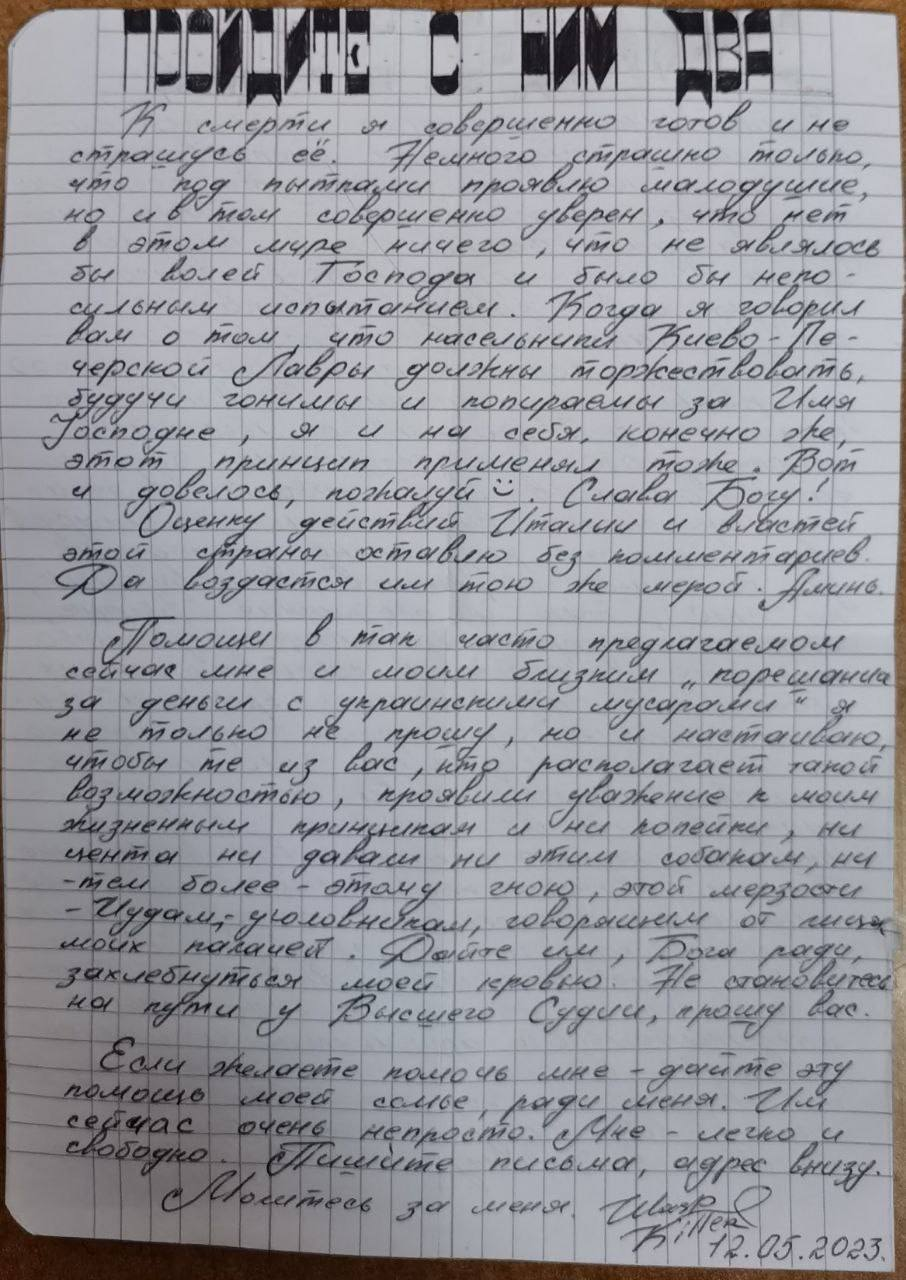 ПРОЙДИТЕ С НИМ ДВА
К смерти я совершенно готов и не
страшусь её. Немного страшно только,
что под пытками проявлю малодушие,
но и в том совершенно уверен, что нет
в этом мире ничего, что не являлось
бы волей Господа и было бы непо-
сильным испытанием. Когда я говорил
вам о том, что насельники Киево-Пе-
черской Лавры должны торжествовать,
будучи гонимы и попираемы за Имя
Господне, я и на себя, конечно же,
этот принцип применял тоже. Вот
и довелось, пожалуй. Слава Богу!
Оценку действий Италии и властей
этой страны оставлю без комментариев.
Да воздастся им тою же мерой. Аминь.
Помощи в так часто предлагаемом
сейчас мне и моим близким „порешании
за деньги с украинскими мусарами“ я
не только не прошу, но и настаиваю,
чтобы те из вас, кто располагает такой
возможностью, проявили уважение к моим
жизненным принципам и ни копейки, ни
цента ни давали ни этим собакам, ни
-тем более- этому гною, этой мерзости
- Иудам,- уголовникам, говорящим от лица
моих палачей. Дайте им, Бога ради,
захлебнуться моей кровью. Не становитесь
на пути у Высшего Судии, прошу вас.
Если желаете помочь мне - дайте эту
помощь моей семье, ради меня. Им
сейчас очень непросто. Мне - легко и
свободно. Пишите письма, адрес внизу.
Молитесь за меня.
Killer
12.05.2023.